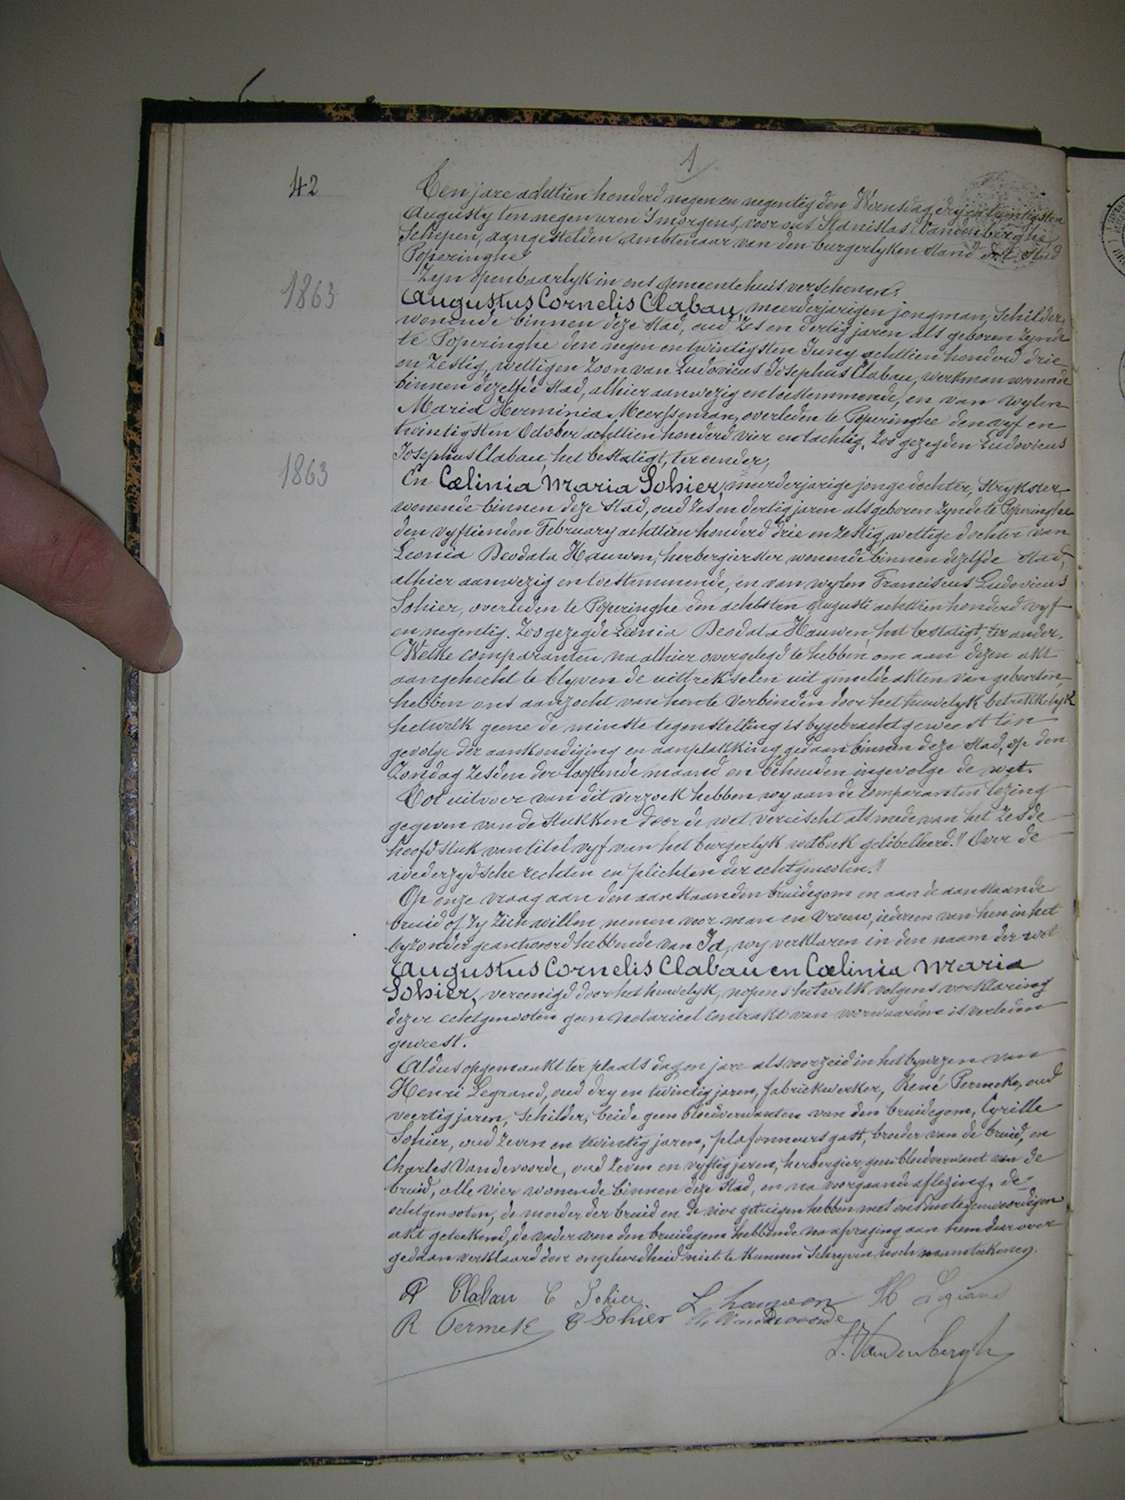 1
42
Een jare achttien honderd negen en negentig den Woensdag, dry en twintigsten
Augusty ten negen uren 's morgens, voor ons Stanislas Vandenberghe,
Schepen, aangestelden Ambtenaar van den burgerlyken Stand der Stad
Poperinghe
Zyn openbaarlyk in ons gemeentehuis verschenen:
1863
Augustus Cornelis Clabau, meerderjarigen jongman, Schilder,
wonende binnen deze Stad, oud Zes en dertig jaren als geboren zynde
te Poperinghe den negen en twintigsten Juny achttien honderd drie
en Zestig, wettigen Zoon van Ludovicus Josephus Clabau, werkman wonende
binnen dezelfde Stad, alhier aanwezig en toestemmende, en van wylen
Maria Herminia Meersseman, overleden te Poperinghe den vyf en
twintigsten October achttien honderd vier en tachtig, Zoo gezegden Ludovicus
Josephus Clabau, het bestatigt, ter eender;
1863
En Cælinia Maria Sohier, meerderjarige jonge dochter, Strykster
wonende binnen deze Stad, oud Zes en dertig jaren als geboren zynde te Poperinghe
den vyftienden February achttien honderd drie en Zestig, wettige dochter van
Leonia Deodata Hauwen, herbergierster wonende binnen dezelfde Stad,
alhier aanwezig en toestemmende, en van wylen Franciscus Ludovicus
Sohier, overleden te Poperinghe den achtsten Augusti achttien honderd vyf
en negentig. Zoo gezegde Leonia Deodata Hauwen, het bestatigt, ter ander.
Welke comparanten, na alhier overgelegd te hebben, om aan dezen akt
aangehecht te blyven de uittrekselen uit gemelde akten van geboorten,
hebben ons aanzocht van hen te verbinden door het huwelyk betrekkelyk
hetwelk geene de minste tegenstelling is bygebracht geweest ten
gevolge der aankondiging en aanplakking gedaan binnen deze Stad, op den
Zondag Zesden der loopende maand en behouden ingevolge de wet.
Tot uitvoer van dit verzoek hebben wy aan de Comparanten lezing
gegeven van de Stukken door de wet vereischt als mede van het Zesde
hoofdstuk van titel vyf van het burgerlyk wetboek gelibelleerd: " Over de
wederzydsche rechten en plichten der echtgenooten. "
Op onze vraag aan den aanstaanden bruidegom en aan de aanstaande
bruid of zy zich willen nemen voor man en vrouw, iedereen van hen in het
byzonder geantwoord hebbende van Ja, wy verklaren in den naam der wet
Augustus Cornelis Clabau en Cælinia Maria
Sohier, vereenigd door het huwelyk, nopens hetwelk volgens verklaring
dezer echtgenooten geen notarieel Contrakt van voorwaarden is verleden
geweest.
Aldus opgemaakt ter plaats dag en jare als voorzeid in het bywezen van
Henri Legrand, oud dry en twintig jaren, fabriekwerker, René Permeke, oud
veertig jaren, Schilder, beide geen bloedverwanten van den bruidegom, Cyrille
Sohier, oud Zeven en twintig jaren, plafonneursgast, broeder van de bruid, en
Charles Vandevoorde, oud Zeven en vyftig jaren, herbergier, geen bloedverwant van de
bruid, alle vier wonende binnen deze Stad, en na voorgaande aflezing, de
echtgenooten, de moeder der bruid en de vier getuigen hebben met ons den tegenwoordigen
akt geteekend, de vader van den bruidegom hebbende na afvraging aan hem daar over
gedaan verklaard door ongeleerdheid niet te kunnen Schryven noch naamteekenen.
A Clabau C Sohier L hauwen H Legrand
R Permeke C Sohier Ch Vandevoorde
S. Vandenberghe